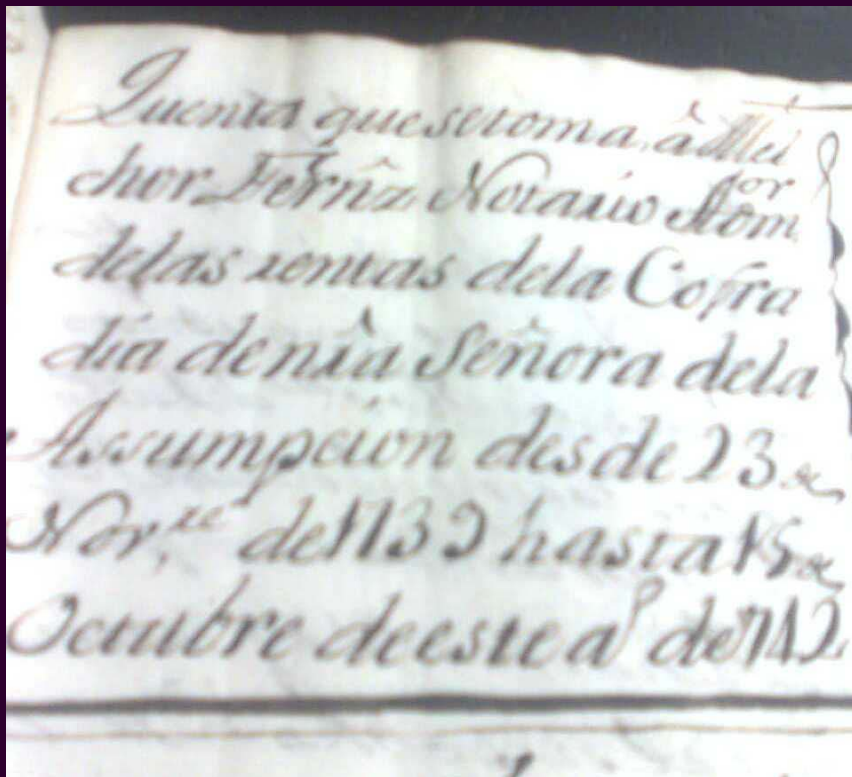 Quenta que se toma â Mel
chor Fernẑ Notario Adm.or
delas rentas dela Cofra
dia de nr̂a Señora dela
Assumpcion desde 23 de
Nov.re de 1739 hasta 15 de
Octubre de este aº de 1742